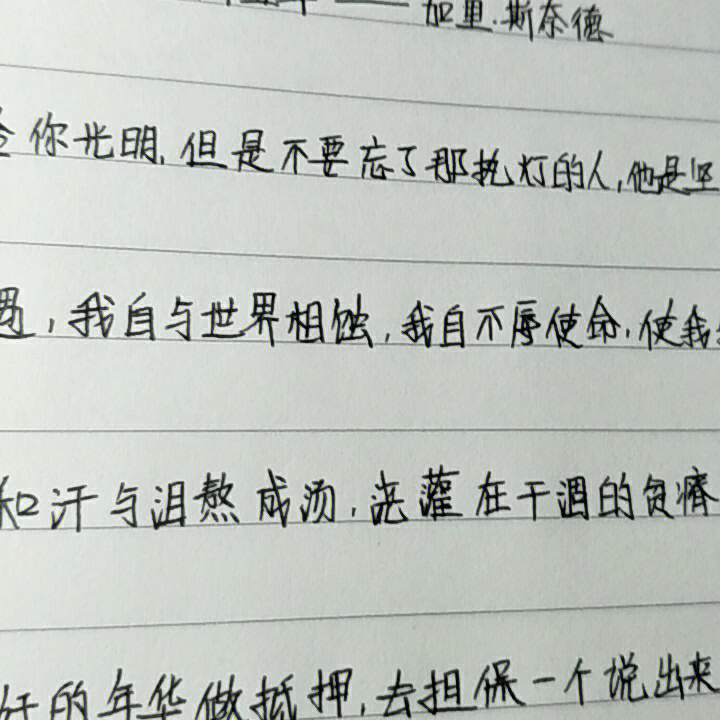 —— 加里.斯奈德
你光明,但是不要忘了那执灯的人,他是坚
遇,我自与世界相蚀,我自不辱使命,使我
和汗与泪熬成汤,浇灌在干涸的贫瘠
好的年华做抵押,去担保一个说出来